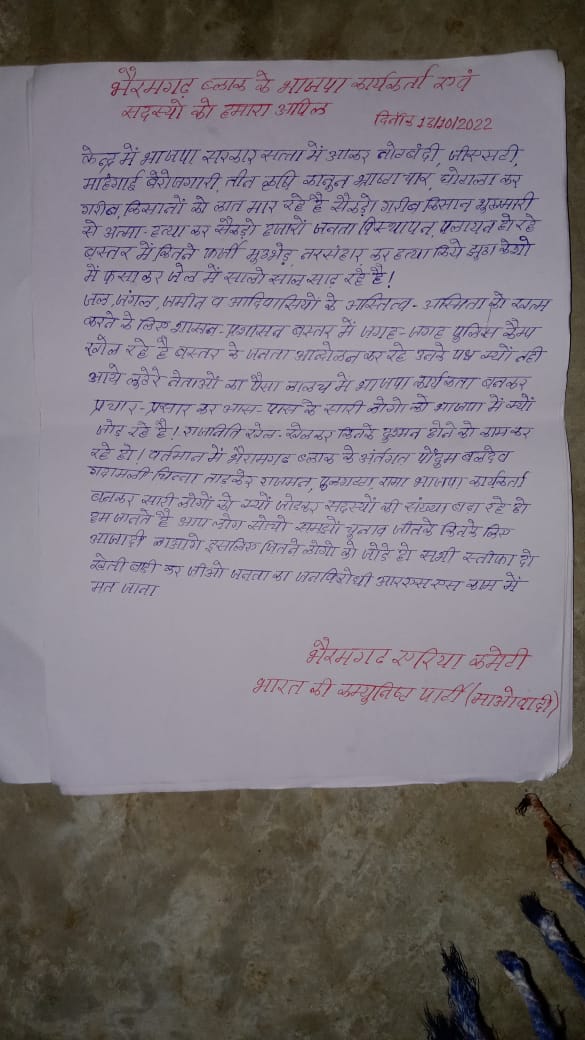 भैरमगढ़ ब्लाक के भाजपा कार्यकर्ता एवं
सदस्यो को हमारा अपिल
दिनाँक 13/10/2022
केन्द्र में भाजपा सरकार सत्ता में आकर नोटबंदी, जीएसटी,
माहंगाई बेरोजगारी, तीन कृषि कानून भ्रष्टाचार, घोटाला कर
गरीब, किसानों को लात मार रहे है सैकड़ो गरीब किसान भुखमारी
से आत्मा-हत्या कर सैकड़ो हजारों जनता विस्थापन, पलायन हो रहे
बस्तर में कितने फर्जी मुठभेड़, नरसंहार कर हत्या किये झुठा केशो
में फसाकर जेल में सालो साल साड़ रहे है!
जल, जंगल, जमीन व आदिवासियों के अस्तित्व-अस्मिता को खत्म
करने के लिए शासन-प्रशासन बस्तर में जगह-जगह पुलिस कैम्प
खोल रहे है बस्तर के जनता आन्दोलन कर रहे उनके पक्ष क्यों नही
आये लुटेरे नेताओं का पैसा लालच में भाजपा कार्यकता बनकर
प्रचार-प्रसार कर आस-पास के सारी लोगो को भाजपा में क्यों
जोड़ रहे है! राजनिति खेल-खेलकर किनके दुश्मन होने को काम कर
रहे हो! वर्तमान में भैरामगढ ब्लाक के अंर्तगत पोंदुम बलदेव
चिन्ना ताडकेर राजमन, रामा भाजपा कार्यकर्ता
बनकर सारी लोगों को क्यों जोडकर सदस्यों की संख्या बढा रहे हो
हम जानते है आप लोग सोचो समझो चुनाव जीतके किनके लिए
आजादी लाओगे इसलिए जितने लोगो को जोडे हो सभी स्तीफा दो
खेती बाडी कर जीओ जनता का जनविरोधी आरएसएस काम में
मत जाना
भैरमगढ एरिया कमेटी
भारत की कम्युनिष्ट पार्टी (माओवादी)